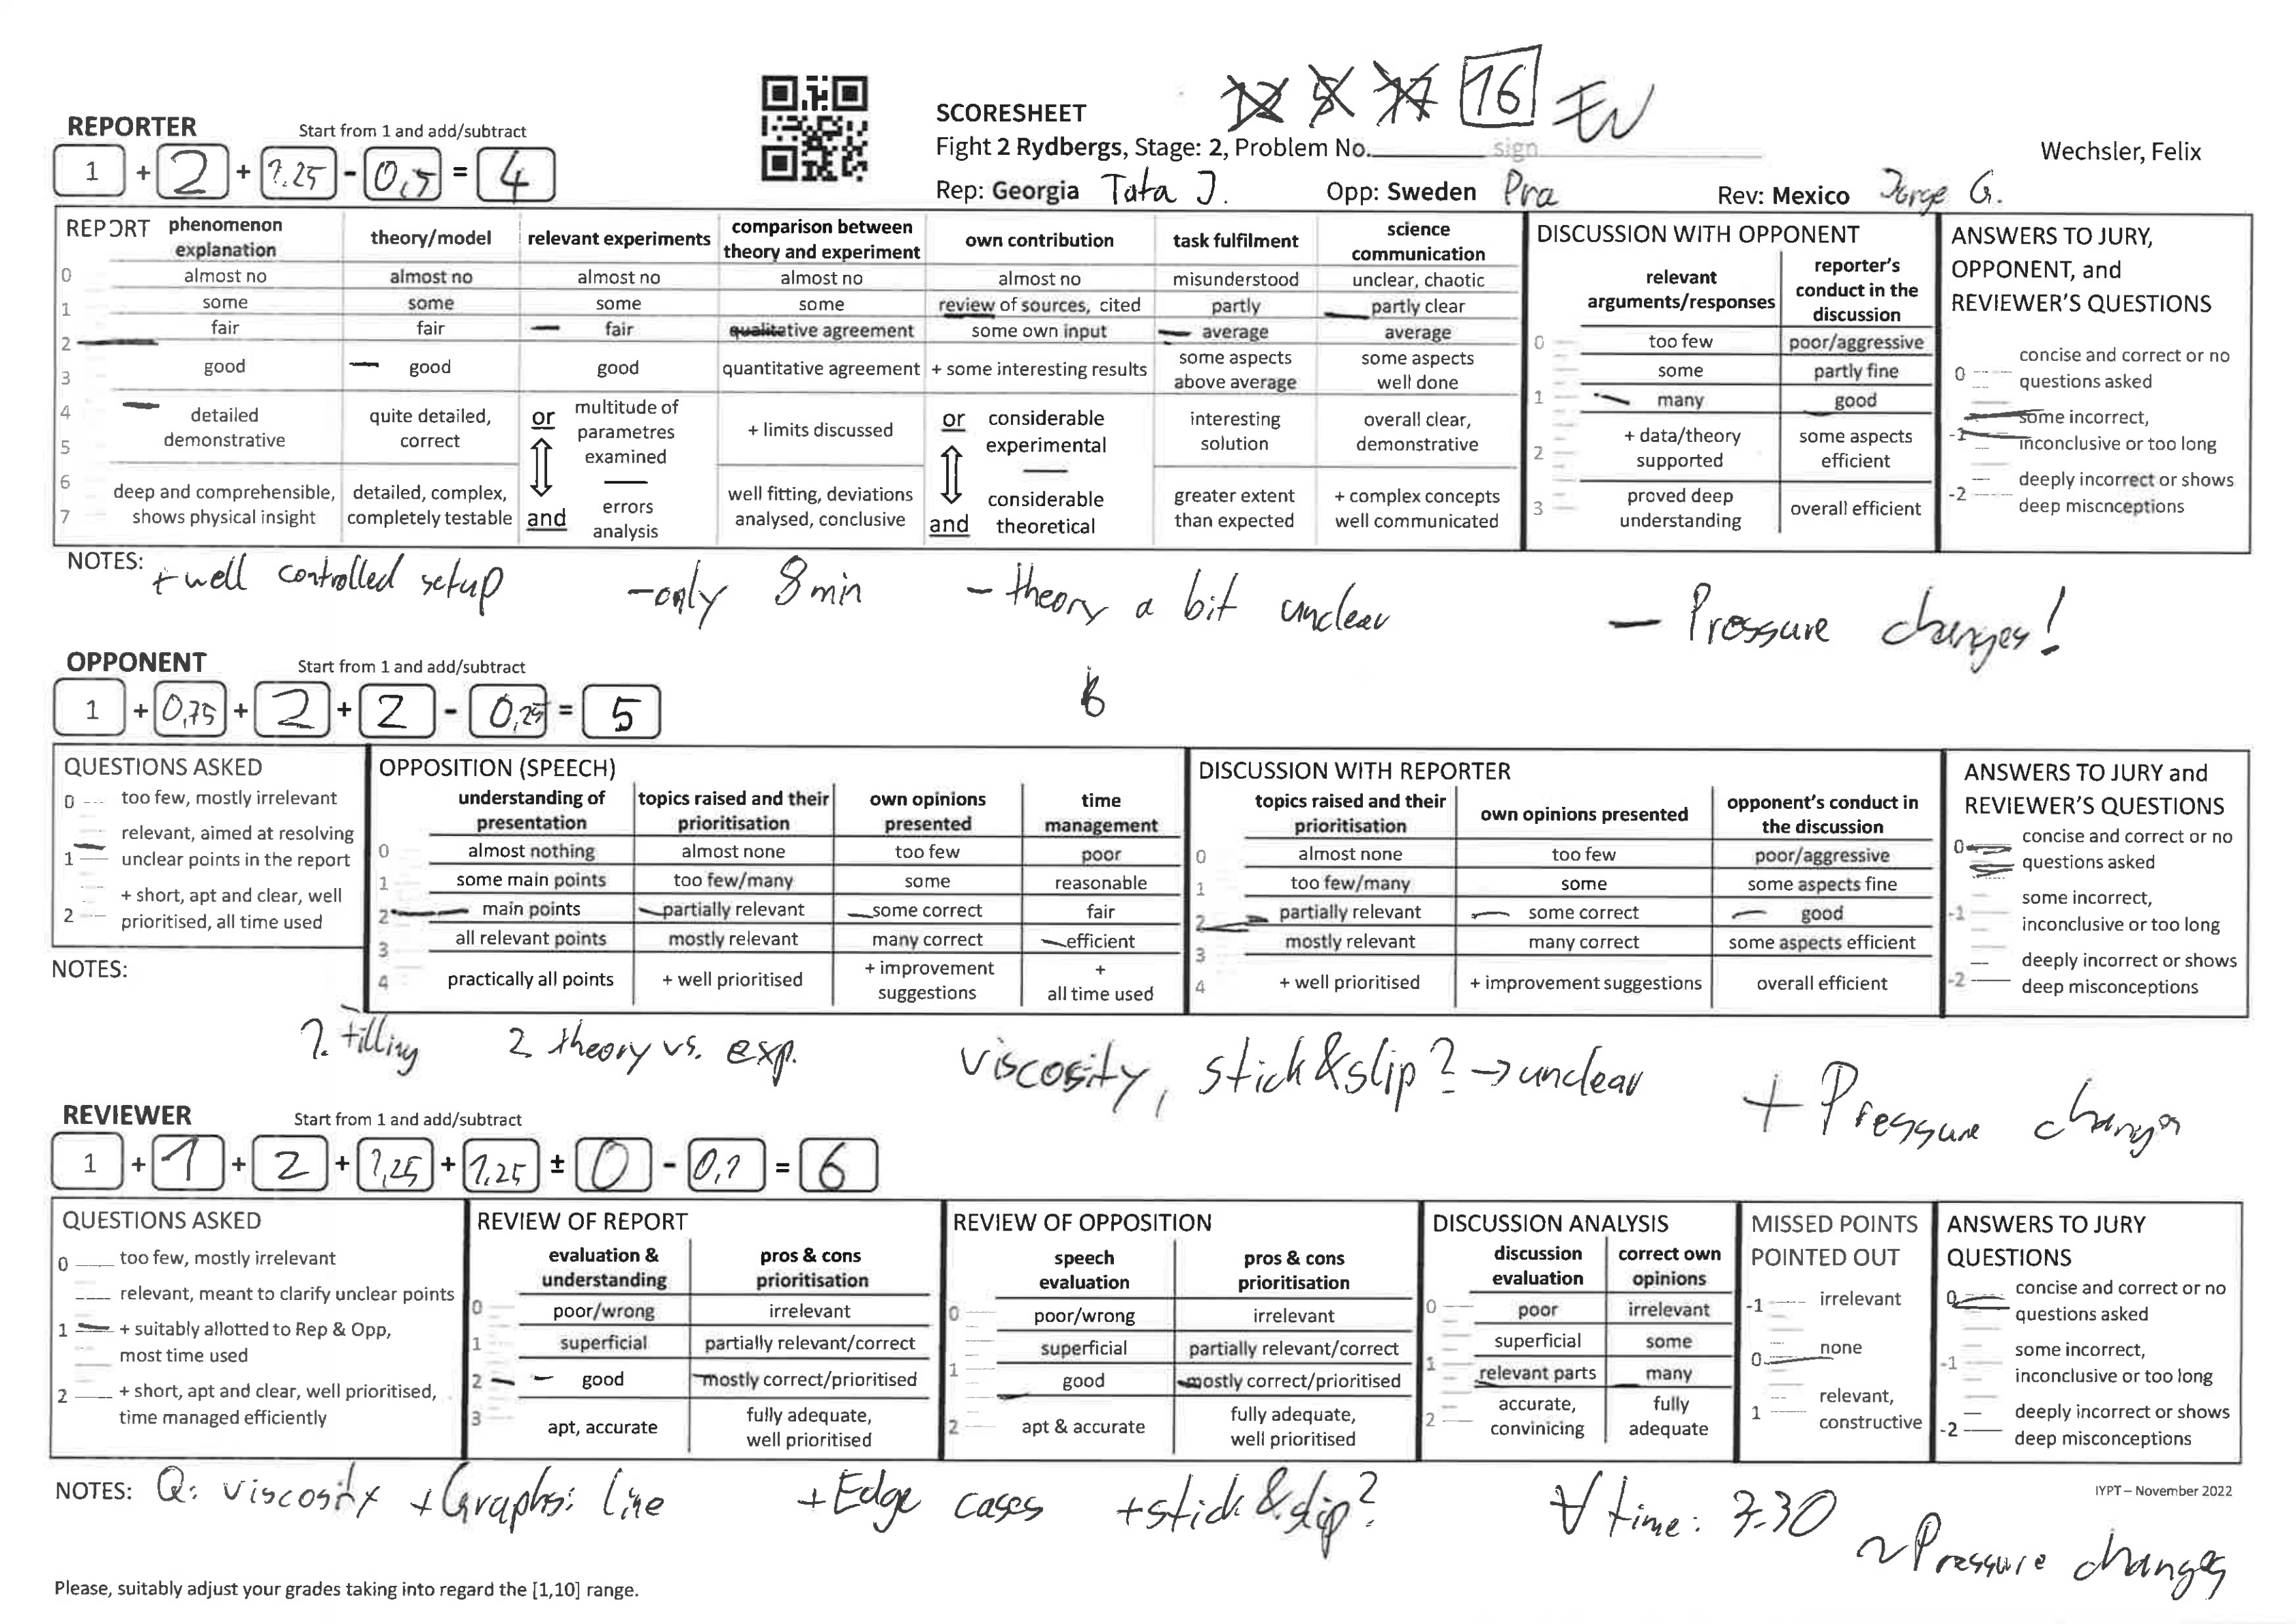 SCORESHEET
12 5 17 16
Fight 2 Rydbergs, Stage: 2, Problem No. sign
Wechsler, Felix
Rep: Georgia Tata J. Opp: Sweden Pra Rev: Mexico Jorge G.
REPORTER Start from 1 and add/subtract
1 + 2 + 1.25 - 0,5 = 4
REPORT
phenomenon explanation
theory/model
relevant experiments
comparison between theory and experiment
own contribution
task fulfilment
science communication
0 almost no almost no almost no almost no almost no misunderstood unclear, chaotic
1 some some some some review of sources, cited partly partly clear
2 fair fair fair qualitative agreement some own input average average
3 good good good quantitative agreement + some interesting results some aspects above average some aspects well done
4 5 detailed demonstrative quite detailed, correct or multitude of parametres examined + limits discussed or considerable experimental interesting solution overall clear, demonstrative
6 7 deep and comprehensible, shows physical insight detailed, complex, completely testable and errors analysis well fitting, deviations analysed, conclusive and considerable theoretical greater extent than expected + complex concepts well communicated
DISCUSSION WITH OPPONENT
relevant arguments/responses reporter's conduct in the discussion
0 too few poor/aggressive
some partly fine
1 many good
2 + data/theory supported some aspects efficient
3 proved deep understanding overall efficient
ANSWERS TO JURY, OPPONENT, and REVIEWER'S QUESTIONS
0 concise and correct or no questions asked
-1 some incorrect, inconclusive or too long
-2 deeply incorrect or shows deep miscnceptions
NOTES: + well controlled setup - only 8 min - theory a bit unclear - Pressure changes!
OPPONENT Start from 1 and add/subtract
1 + 0,75 + 2 + 2 - 0,25 = 5
QUESTIONS ASKED
0 too few, mostly irrelevant
1 relevant, aimed at resolving unclear points in the report
2 + short, apt and clear, well prioritised, all time used
OPPOSITION (SPEECH)
understanding of presentation topics raised and their prioritisation own opinions presented time management
0 almost nothing almost none too few poor
1 some main points too few/many some reasonable
2 main points partially relevant some correct fair
3 all relevant points mostly relevant many correct efficient
4 practically all points + well prioritised + improvement suggestions + all time used
DISCUSSION WITH REPORTER
topics raised and their prioritisation own opinions presented opponent's conduct in the discussion
0 almost none too few poor/aggressive
1 too few/many some some aspects fine
2 partially relevant some correct good
3 mostly relevant many correct some aspects efficient
4 + well prioritised + improvement suggestions overall efficient
ANSWERS TO JURY and REVIEWER'S QUESTIONS
0 concise and correct or no questions asked
-1 some incorrect, inconclusive or too long
-2 deeply incorrect or shows deep misconceptions
NOTES:
1. Filling 2 theory vs. exp. viscosity, stick&slip? → unclear + Pressure changes
REVIEWER Start from 1 and add/subtract
1 + 1 + 2 + 1,25 + 1,25 ± 0 - 0,1 = 6
QUESTIONS ASKED
0 too few, mostly irrelevant
relevant, meant to clarify unclear points
1 + suitably allotted to Rep & Opp, most time used
2 + short, apt and clear, well prioritised, time managed efficiently
REVIEW OF REPORT
evaluation & understanding pros & cons prioritisation
0 poor/wrong irrelevant
1 superficial partially relevant/correct
2 good mostly correct/prioritised
3 apt, accurate fully adequate, well prioritised
REVIEW OF OPPOSITION
speech evaluation pros & cons prioritisation
0 poor/wrong irrelevant
1 superficial partially relevant/correct
good mostly correct/prioritised
2 apt & accurate fully adequate, well prioritised
DISCUSSION ANALYSIS
discussion evaluation correct own opinions
0 poor irrelevant
superficial some
1 relevant parts many
2 accurate, convinicing fully adequate
MISSED POINTS POINTED OUT
-1 irrelevant
0 none
1 relevant, constructive
ANSWERS TO JURY QUESTIONS
0 concise and correct or no questions asked
-1 some incorrect, inconclusive or too long
-2 deeply incorrect or shows deep misconceptions
NOTES: Q: viscosity + Graphs: line + Edge cases + stick&slip? ∀ time: 7:30 ~Pressure changes
IYPT – November 2022
Please, suitably adjust your grades taking into regard the [1,10] range.